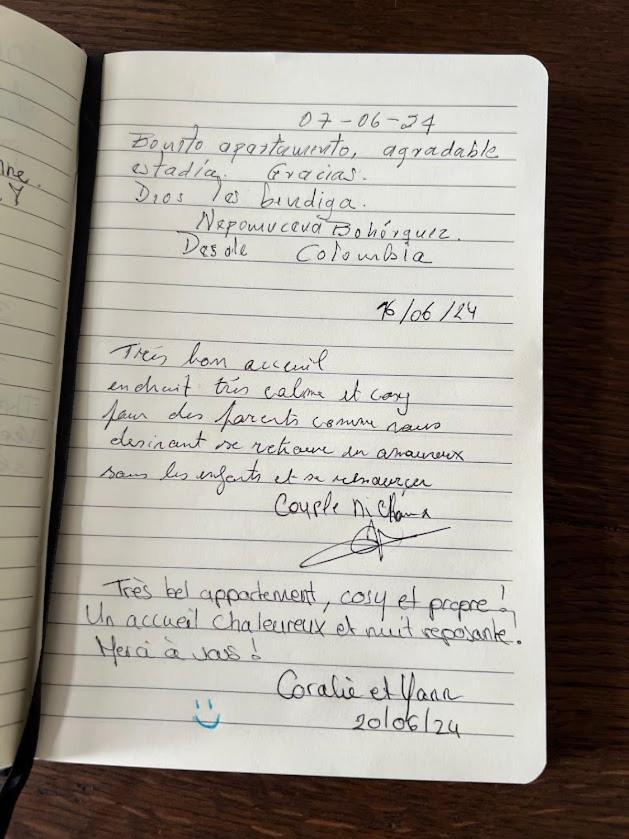 ne.
07-06-24
Bonito apartamento, agradable
estadía. Gracias.
Dios les bendiga.
Nepomuceva Bohórquez.
Desde Colombia
16/06/24
Trés bon acceuil
endruit trés calme et cosy
pour des parents comme nous
desirant se retrouve en amoureux
sans les enfants et se ressourçer
Couple
Très bel appartement, cosy et propre !
Un accueil chaleureux et nuit reposante.
Merci à vous !
Coralie et Yann
20/06/24